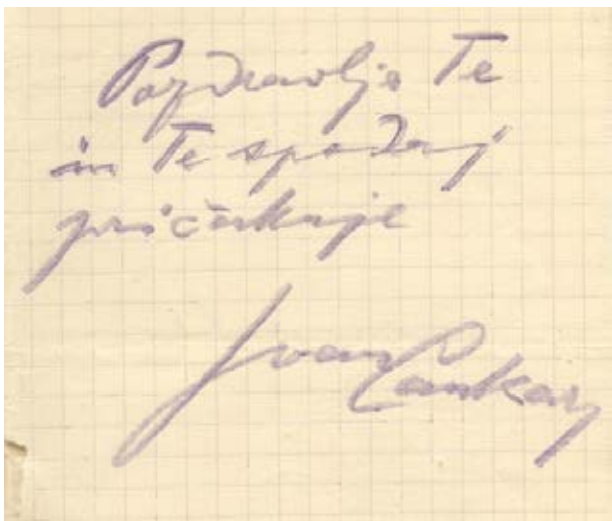 Pozdravlja Te
in Te spodaj
pričakuje
Ivan Cankar